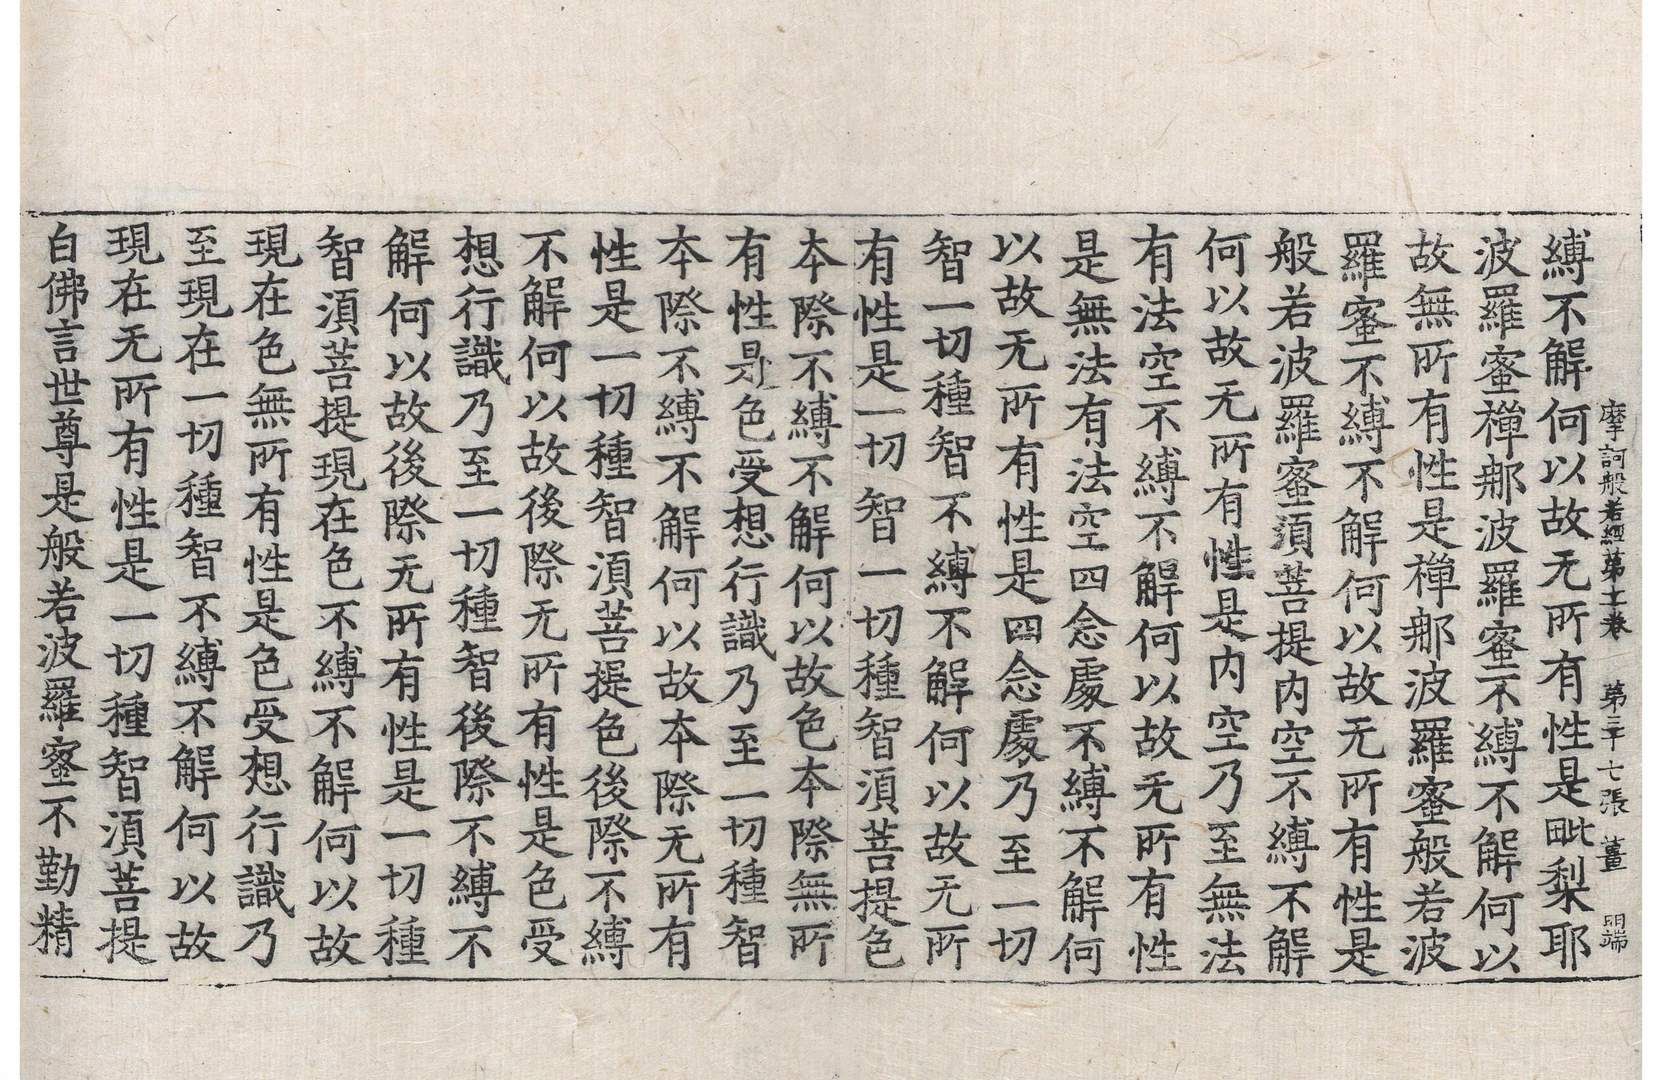 摩訶般若經第十一卷　第三十七張　薑　明端
縛不解何以故无所有性是毗梨耶
波羅蜜禪那波羅蜜不縛不解何以
故無所有性是禪那波羅蜜般若波
羅蜜不縛不解何以故无所有性是
般若波羅蜜須菩提内空不縛不解
何以故无所有性是内空乃至無法
有法空不縛不解何以故无所有性
是無法有法空四念處不縛不解何
以故无所有性是四念處乃至一切
智一切種智不縛不解何以故无所
有性是一切智一切種智須菩提色
本際不縛不解何以故色本際無所
有性是色受想行識乃至一切種智
本際不縛不解何以故本際无所有
性是一切種智須菩提色後際不縛
不解何以故後際无所有性是色受
想行識乃至一切種智後際不縛不
解何以故後際无所有性是一切種
智須菩提現在色不縛不解何以故
現在色無所有性是色受想行識乃
至現在一切種智不縛不解何以故
現在无所有性是一切種智須菩提
白佛言世尊是般若波羅蜜不勤精